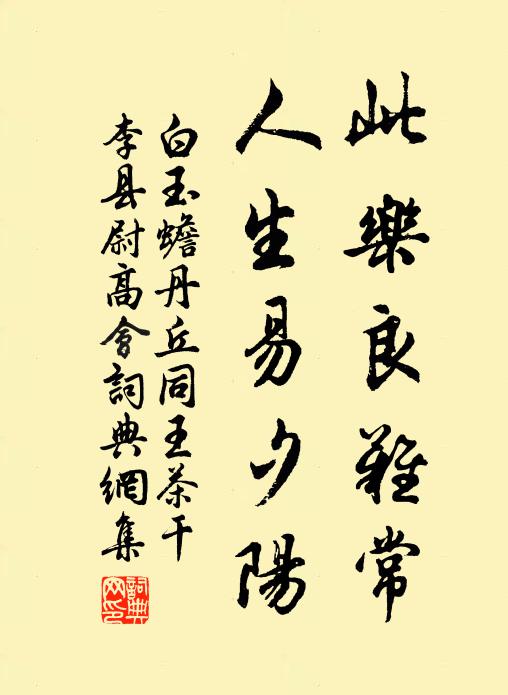 此樂良難常
人生易夕陽
白玉蟾丹丘同王茶干
李县尉高會詞典網集
詞典網印